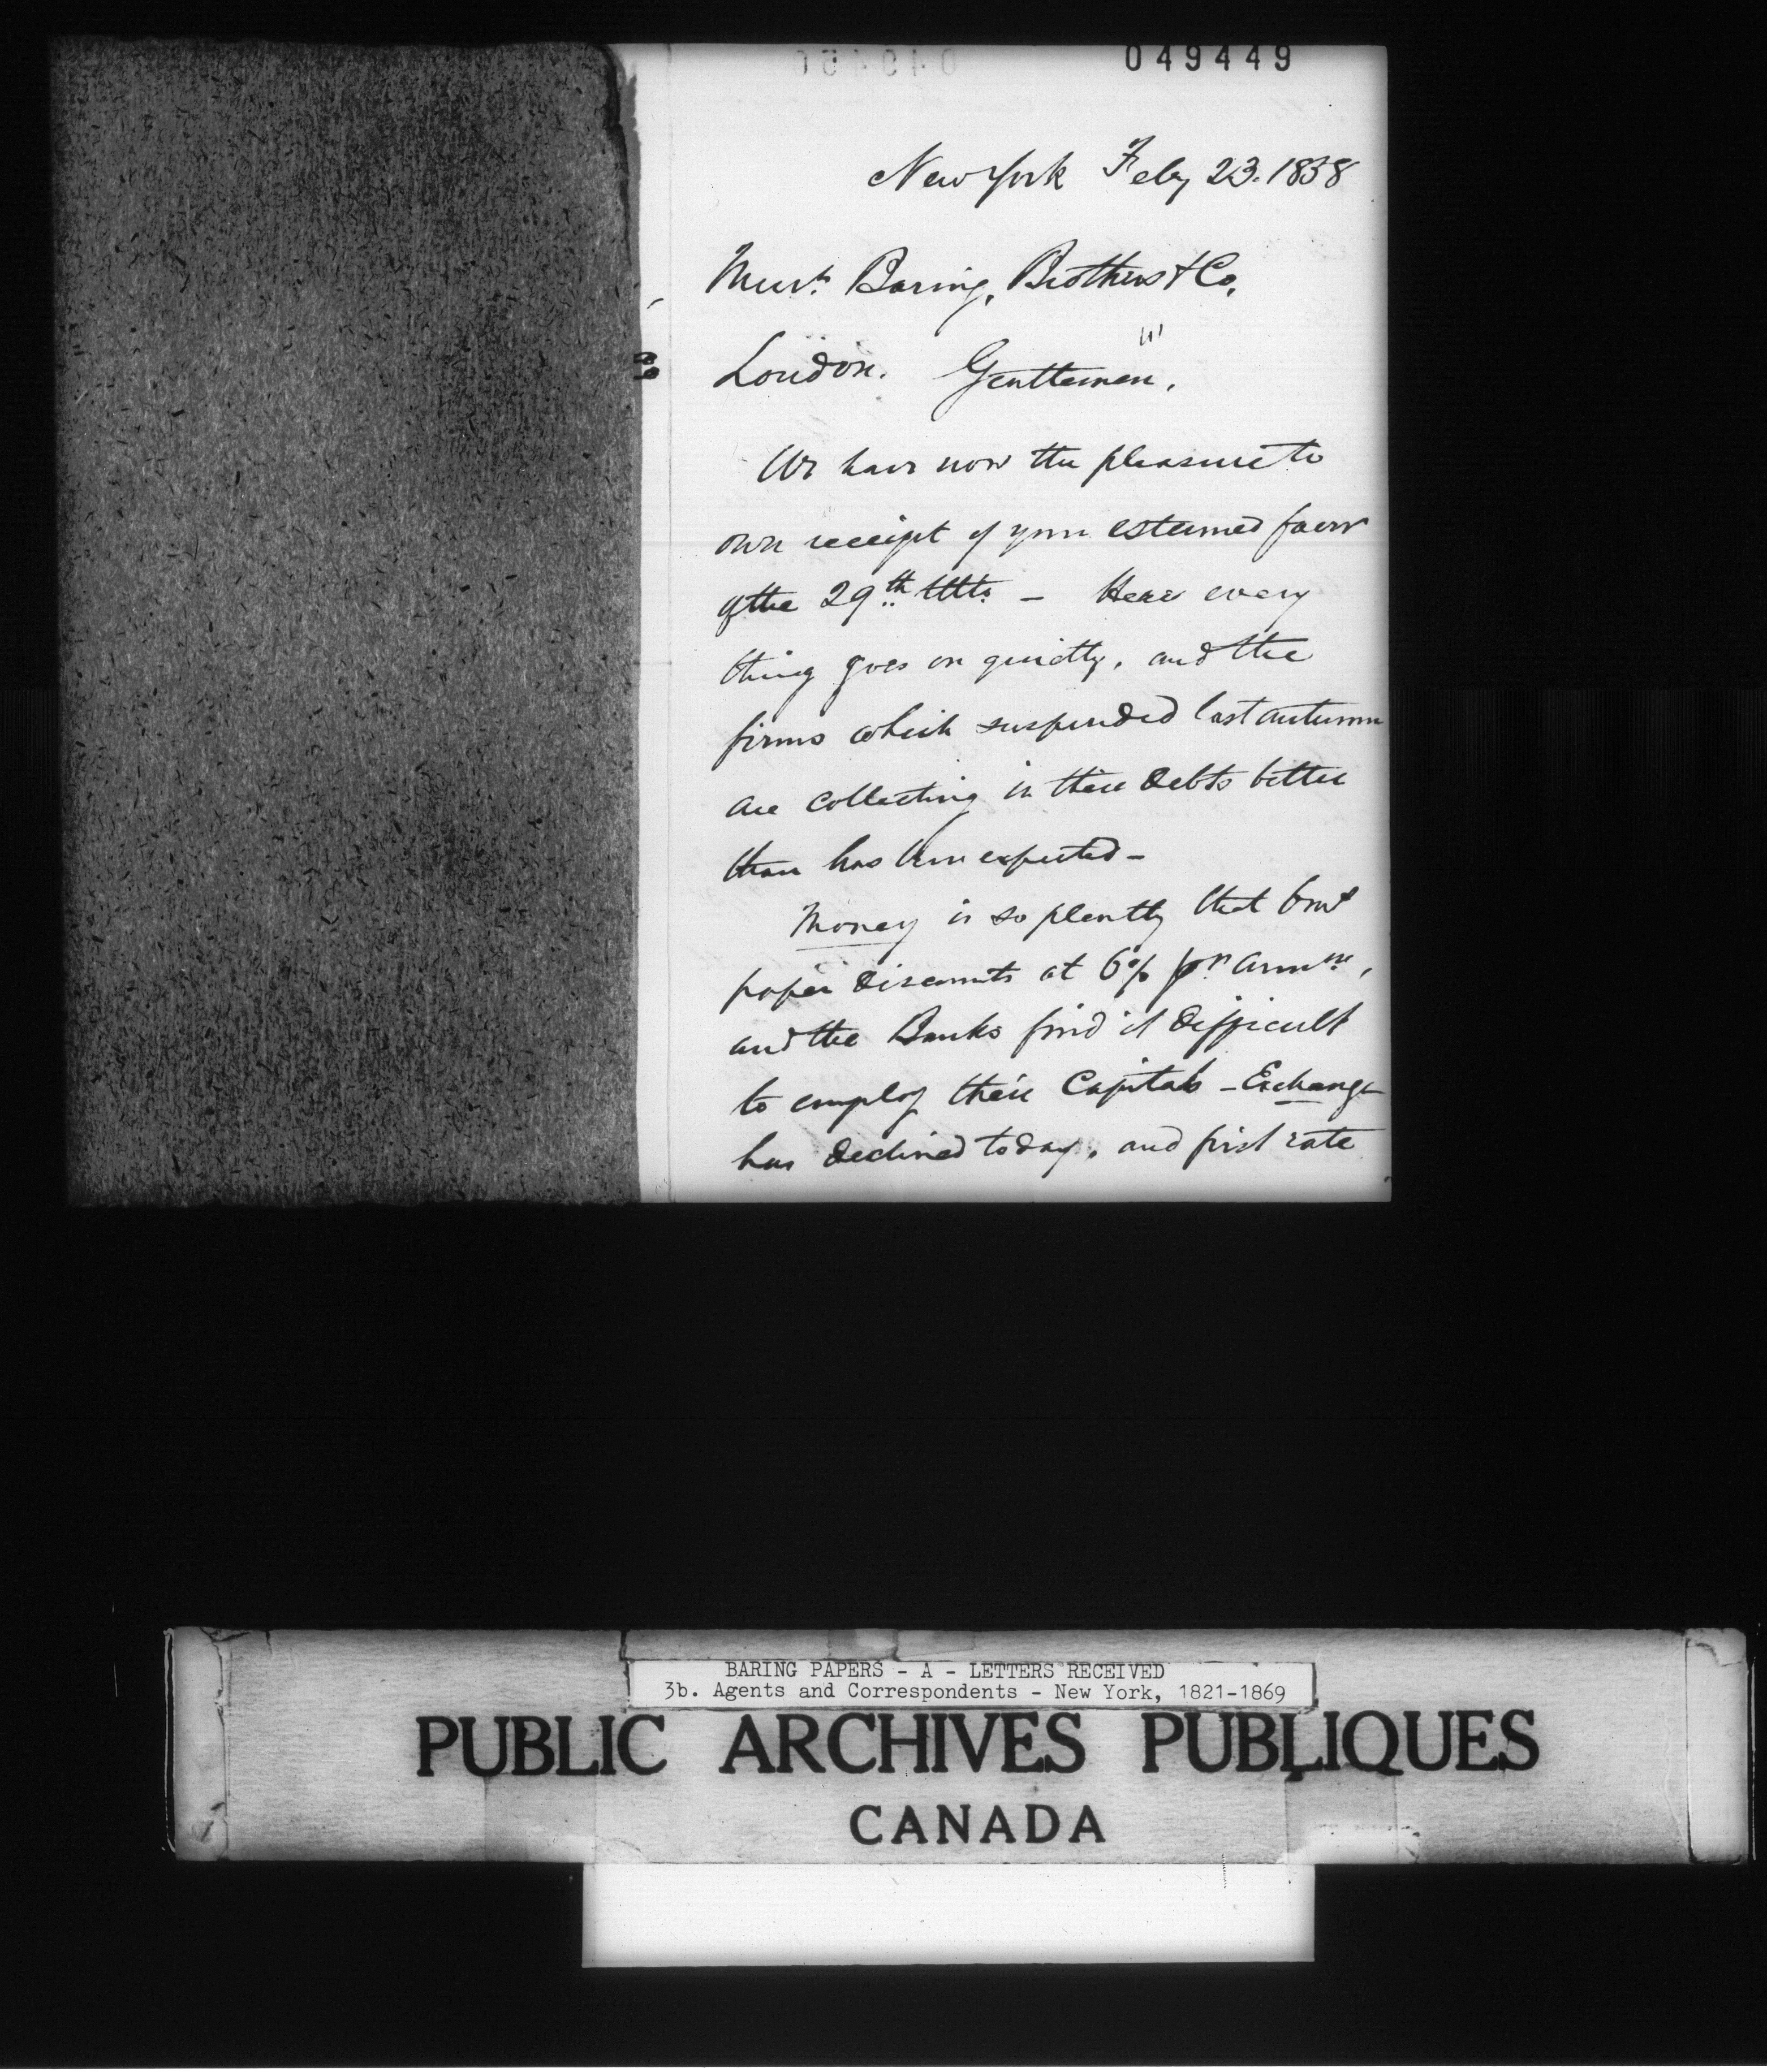 049449
New York Feby 23. 1858
Messrs Baring, Brothers & Co,
London. Gentlemen,
We have now the pleasure to
own receipt of your esteemed favor
of the 29th Ulto. – Here every
thing goes on quietly, and the
firms which suspended last autumn
are collecting in their debts better
than has been expected –
Money is so plenty that
paper discounts at 6% pr annm,
and the Banks find it difficult
to employ their Capitals – Exchange
has declined today, and first rate
BARING PAPERS - A - LETTERS RECEIVED
3b. Agents and Correspondents - New York, 1821-1869
PUBLIC ARCHIVES PUBLIQUES
CANADA